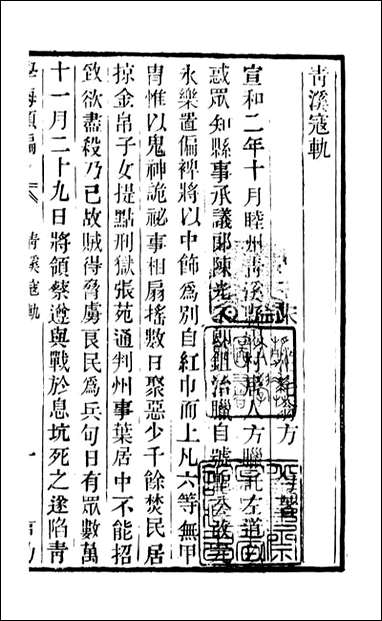 青溪寇軌
宋 方
宣和二年十月睦州青溪縣 村居人方臘託左道以
惑眾知縣事承議郎陳光不即鉏治臘自號聖公改元
永樂置偏裨將以巾飾為別自紅巾而上凡六等無甲
冑惟以鬼神詭祕事相扇搖數日聚惡少千餘焚民居
掠金帛子女提點刑獄張苑通判州事葉居中不能招
致欲盡殺乃已故賊得脅虜良民為兵旬日有眾數萬
十一月二十九日將領蔡遵與戰於息坑死之遂陷青
學海類編
青溪寇軌
一